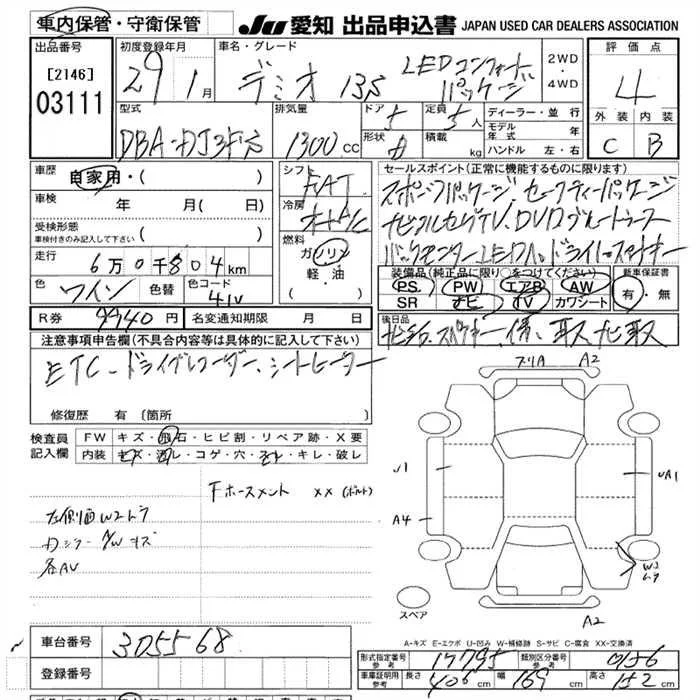 車内保管・守衛保管
JU 愛知 出品申込書 JAPAN USED CAR DEALERS ASSOCIATION
出品番号
[2146]
03111
初度登録年月
29年1月
車名・グレード
デミオ 13S LEDコンフォート
パッケージ
2WD
・
4WD
評価点
4
外装 内装
C B
型式
DBA-DJ3FS
排気量
1300 CC
ドア 5
定員 5人
形状
積載 kg
ディーラー・並行
モデル年式 年
ハンドル 左・右
車歴
自家用・( )
車検 年 月(日)
受検形態
車検付きのみ記入して下さい ( )
走行
6万0千804km
色
ワイン
色替
色コード
41V
シフト
FAT
冷房
オートA/C
燃料
ガソリン
軽・油
( )
セールスポイント(正常に機能するものに限ります)
スポーツパッケージ、セーフティーパッケージ
ナビフルセグTV、DVDブルートゥース
バックモニターLED
装備品(純正品に限り○をつけてください)
PS PW エアB AW
SR ナビ TV カワシート
新車保証書
有・無
R券 9940円
名変通知期限 月 日
後日品
注意事項申告欄(不具合内容等は具体的に記入して下さい)
ETC、ドライブレコーダー、シートヒーター
修復歴 有 〔箇所
検査員
記入欄
FW キズ・飛石・ヒビ割・リペア跡・X要
内装 キズ・汚レ・コゲ・穴・スレ・キレ・破レ
Fホースメント XX (ボルト)
左側面W2ムラ
各AV
プリA A2
U1
UA1
A4
W2
ムラ
A2
スペア
A-キズ E-エクボ U-凹み W-補修跡 S-サビ C-腐食 XX-交換済
車台番号
305568
登録番号
形式指定番号
参考
17795
類別区分番号
参考
0156
車庫証明用
参考
長さ 406 cm
幅 169 cm
高さ 152 cm